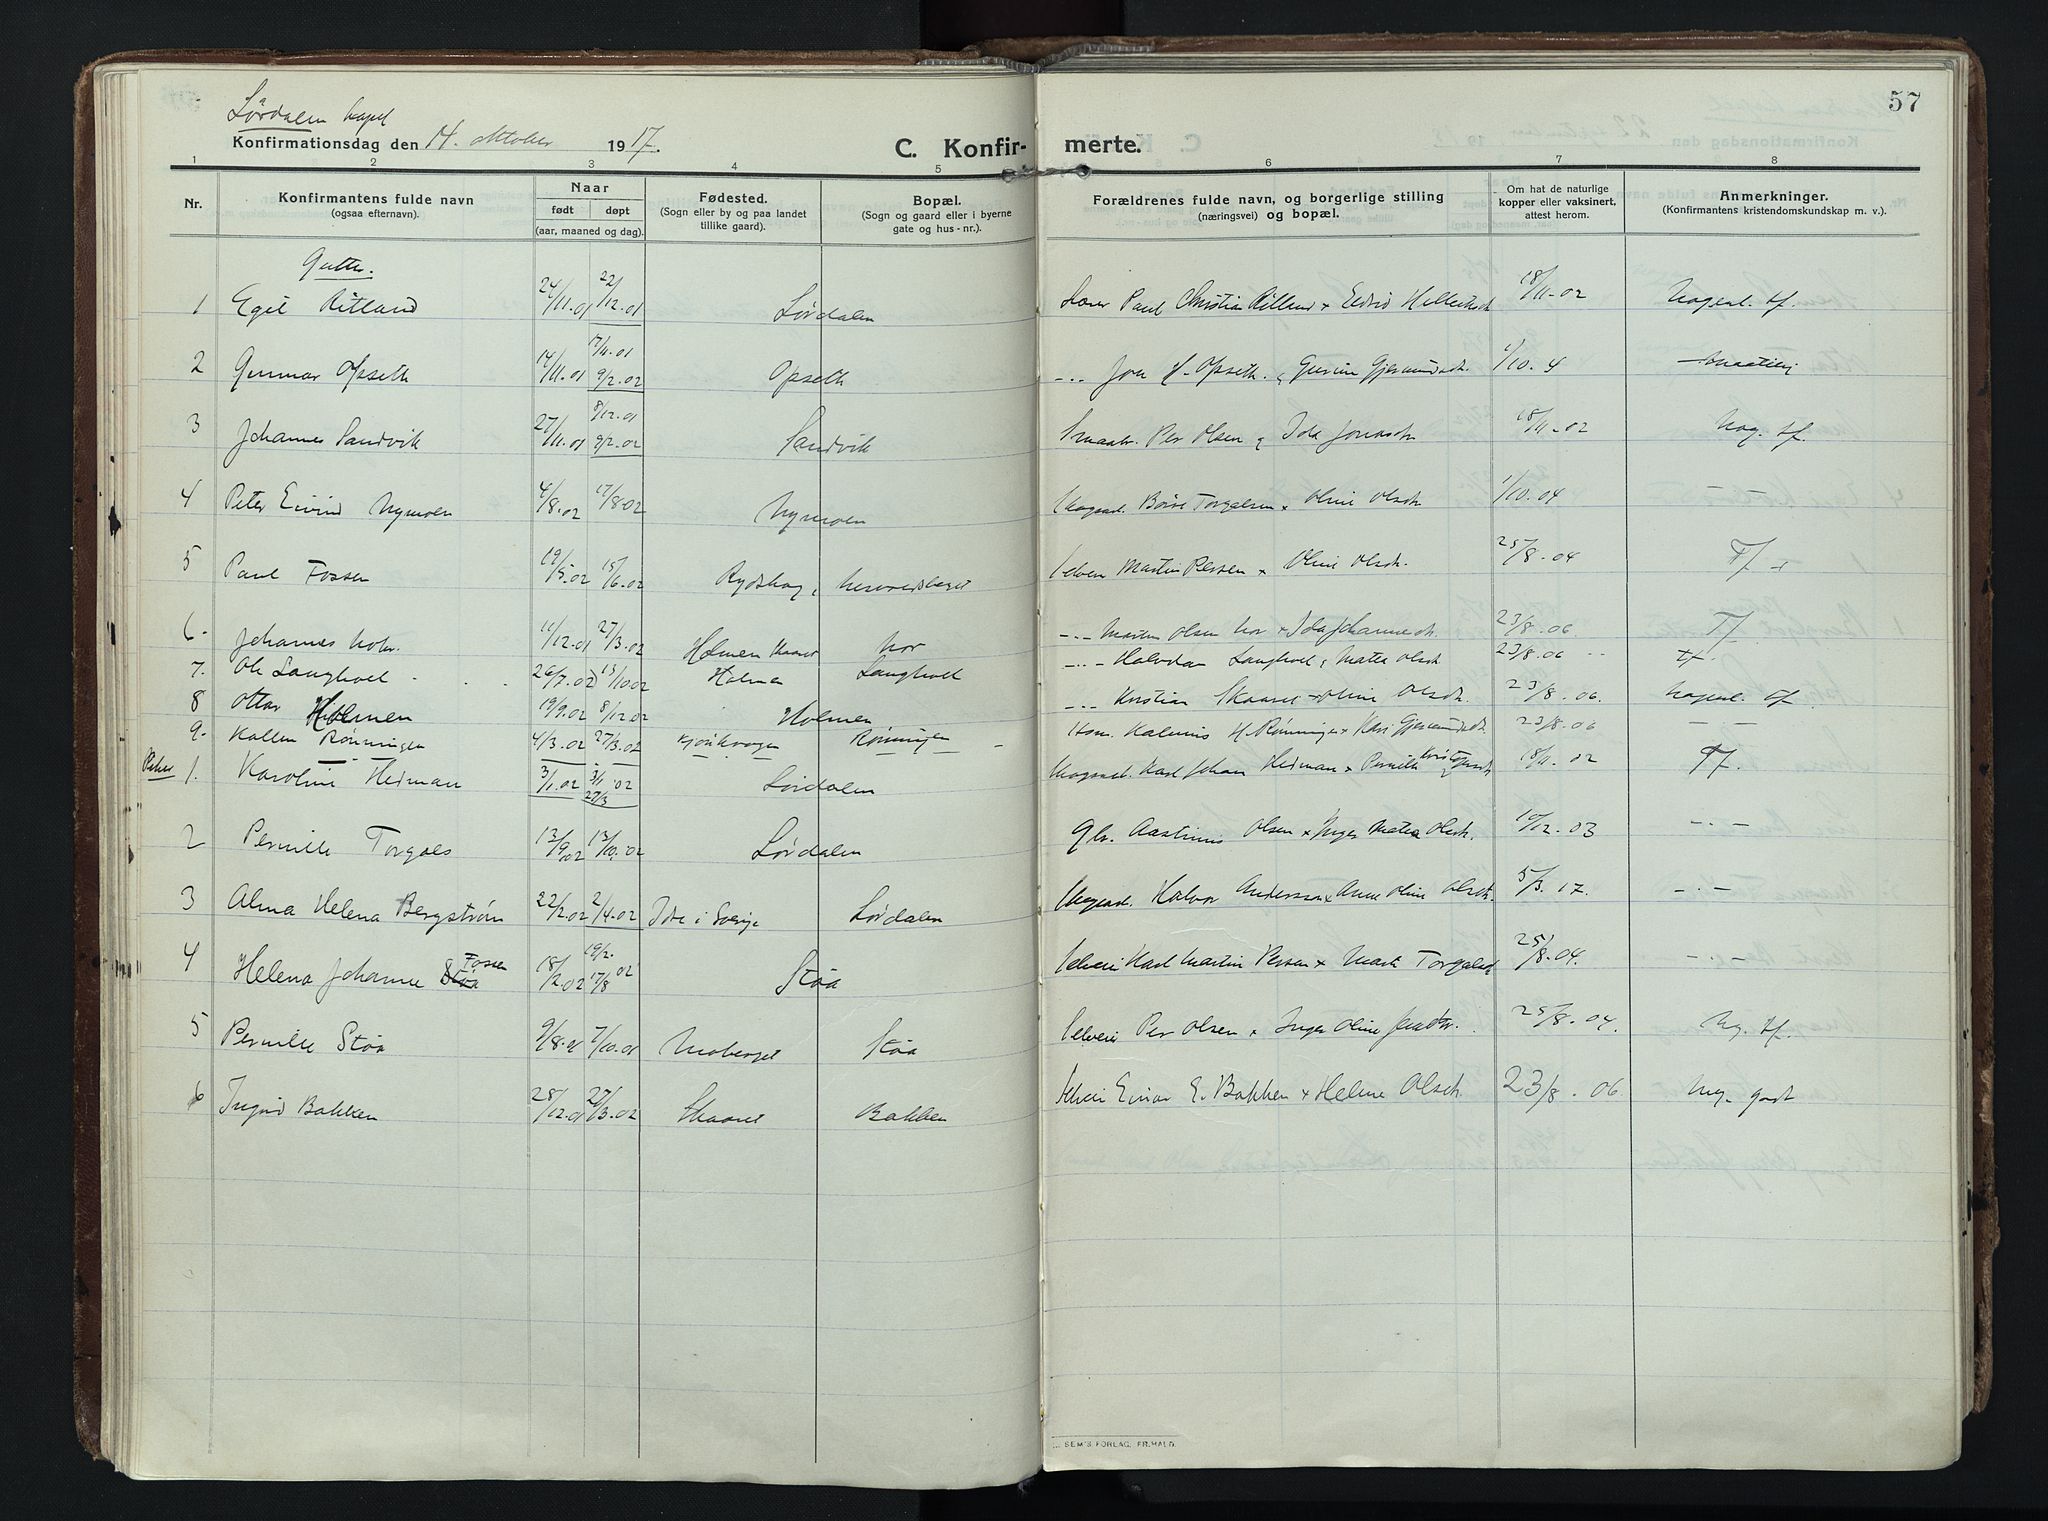 57
Lørdalen kapel
Konfirmationsdag den 14. oktober 1917.
C. Konfir- merte.
1 2 3 4 5 6 7 8
Nr.
Konfirmantens fulde navn
(ogsaa efternavn).
Naar
født døpt
(aar, maaned og dag).
Fødested.
(Sogn eller by og paa landet
tillike gaard).
Bopæl.
(Sogn og gaard eller i byerne
gate og hus-nr.).
Forældrenes fulde navn, og borgerlige stilling
(næringsvei) og bopæl.
Om hat de naturlige
kopper eller vaksinert,
attest herom.
Anmerkninger.
(Konfirmantens kristendomskundskap m. v.).
Gutter.
1 Egil Ritland 24/11.01 22/12.01 Lørdalen Lærer Paul Christian Ritland 18/11-02 Nogenl. tf.
2 Gunnar Opseth 14/11.01 17/11.01 9/2.02 Opseth -.- Jon H. Opseth 1/10.4
3 Johannes Sandvik 27/11.01 8/12.01 9/2.02 Sandvik Smaabr. Per Olsen & Ida 18/11-02 Nog. tf.
4 Peter Eivind Nymoen 4/8.02 17/8.02 Nymoen Børse Torgalsen x Oline Olsdr. 1/10.04
5 Paul Fossen 19/5.02 15/6.02 Selveier Martin Persen x Oline Olsdr. 25/8-04 Tf.
6. Johannes Nor. 11/12.01 27/3.02 Holmen Skaaret Nor -.- Olsen Nor x Ida Johannesdr. 23/8.06 Tf.
7. Ole Langhoel 26/7.02 13/10.02 Holmen Langhoel -.- Halvdan Langhoel & Matea Olsdr. 23/8.06 tf.
8 Ottar Holmen 19/9.02 8/12.02 Holmen -.- Kristian Skaaret x Oline Olsdr. 23/8.06. Nogenl. tf.
9. Rønningen 4/3.02 27/3.02 Rønningen H. Rønningen x Kari Gjermundsdr. 23/8.06 -.-
Piker 1. Karoline Hedman 3/1.02 3/1 02 27/3 Lørdalen Karl Johan Hedman x Pernille 18/11.02 Tf.
2 Pernille Torgals 13/9.02 13/10.02 Lørdalen Olsen x Inger Matea Olsdr. 10/12.03 -.-
3 Alma Helena Bergström 22/2.02 2/4.02 Idre i Sverige Lørdalen Halvor Andersson x Anne Oline Olsdr. 5/3.17. -.-
4 Helena Johanne Støa Fossen 18/2.02 19/2. 17/8 02 Støa Selveier Karl Martin Persen x Marte Torgalsd 25/8-04. -.-
5 Pernille Støa 9/8.01 7/10.01 Moberget Støa Selveier Per Olsen x Inger Oline 25/8-04. Ng. tf.
6 Ingrid Bakken 28/12.01 27/3.02 Skaaret Bakken Selveier Einar E. Bakken x Helene Olsdr. 23/8.06. Mg. godt
SEM'S FORLAG, FR.HALD.